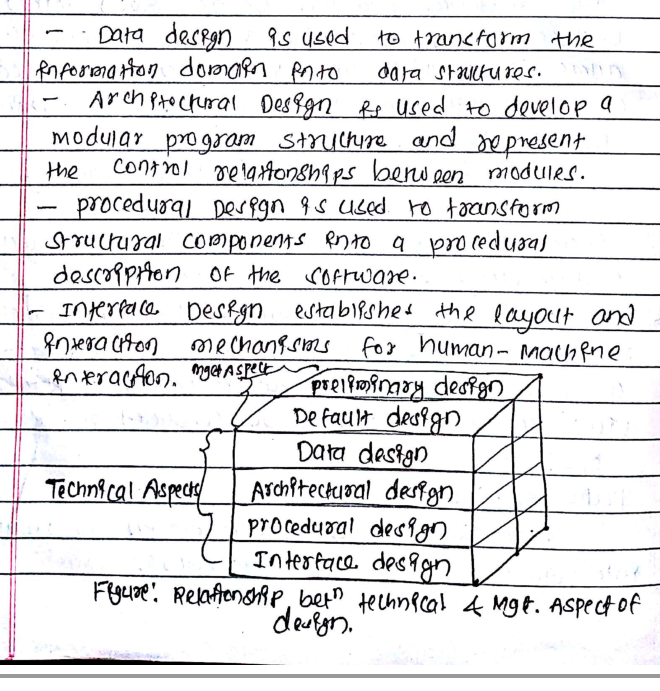 - Data design is used to transform the
information domain into data structures.
- Architectural Design is used to develop a
modular program structure and represent
the control relationships between modules.
- procedural Design is used to transform
structural components into a procedural
description of the software.
- Interface Design establishes the layout and
interaction mechanisms for human-machine
interaction.
mgt Aspect
preliminary design
Default design
Data design
Technical Aspects
Architectural design
procedural design
Interface design
Figure: Relationship betn technical & Mgt. Aspect of
design.